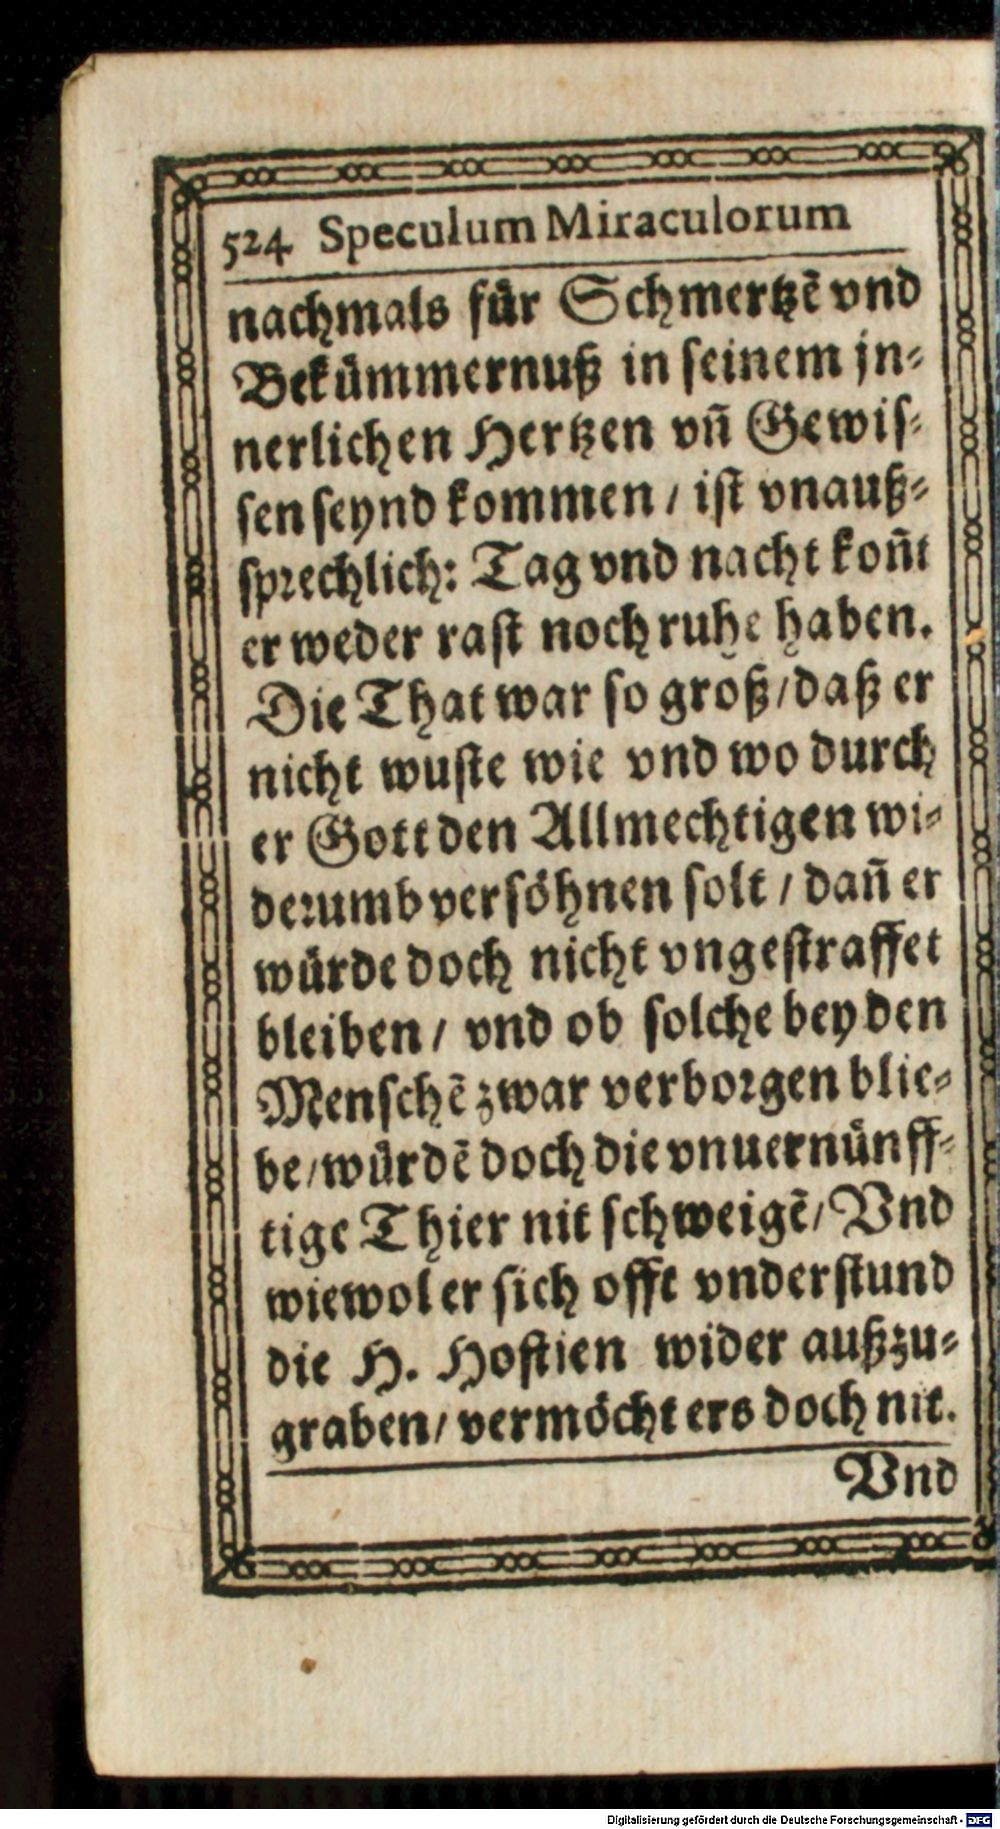 524 Speculum Miraculorum
nachmals für Schmertzẽ vnd
Bekümmernuß in seinem jn-
nerlichen Hertzen vñ Gewis-
sen seynd kommen / ist vnauß-
sprechlich: Tag vnd nacht koñt
er weder rast noch ruhe haben.
Die That war so groß / daß er
nicht wuste wie vnd wo durch
er Gott den Allmechtigen wi-
derumb versöhnen solt / dañ er
würde doch nicht vngestraffet
bleiben / vnd ob solche bey den
Menschẽ zwar verborgen blie-
be / würdẽ doch die vnuernünff-
tige Thier nit schweigẽ / Vnd
wiewol er sich offt vnderstund
die H. Hostien wider außzu-
graben / vermöcht ers doch nit.
Vnd
Digitalisierung gefördert durch die Deutsche Forschungsgemeinschaft - DFG